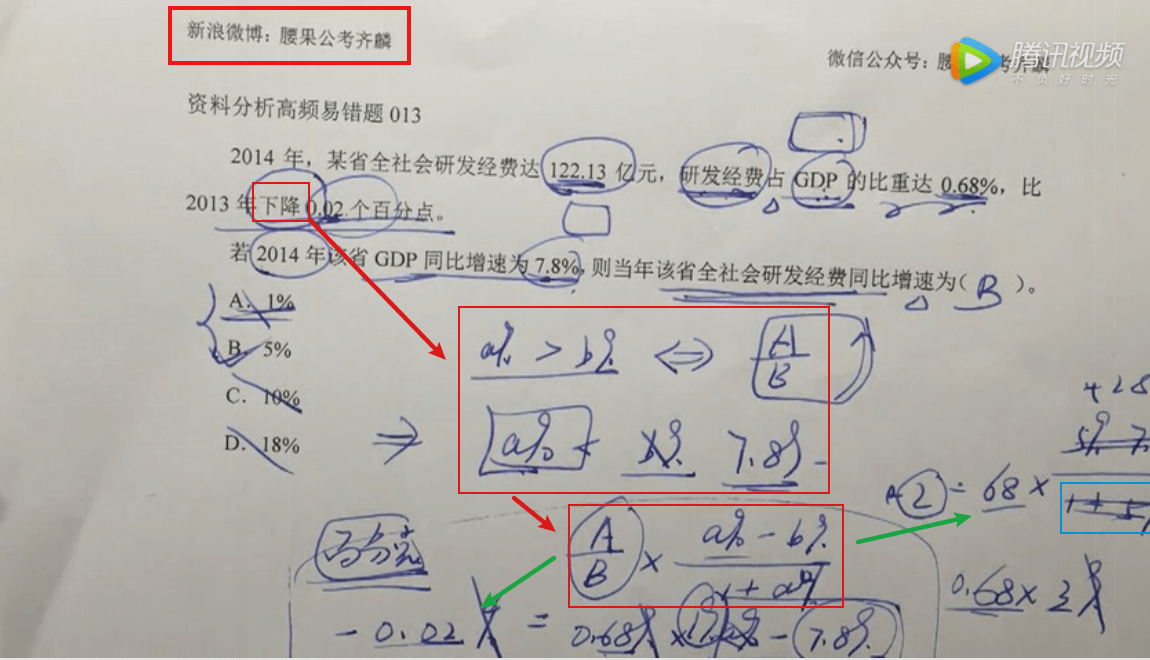 新浪微博：腰果公考齐麟
微信公众号：腰 考齐麟
腾讯视频
不负好时光
资料分析高频易错题 013
2014 年，某省全社会研发经费达 122.13 亿元，研发经费占 GDP 的比重达 0.68%，比
2013 年下降 0.02 个百分点。
若 2014 年该省 GDP 同比增速为 7.8%，则当年该省全社会研发经费同比增速为（ B ）。
A．1%
B．5%
C．10%
D．18%
a% > b% ⇔ A/B
⇒ a% 7.8%
-2 = 68 ×
A/B × a% - b% / 1 + a%
0.68 × 3%
-0.02% = 0.68% × - 7.8%